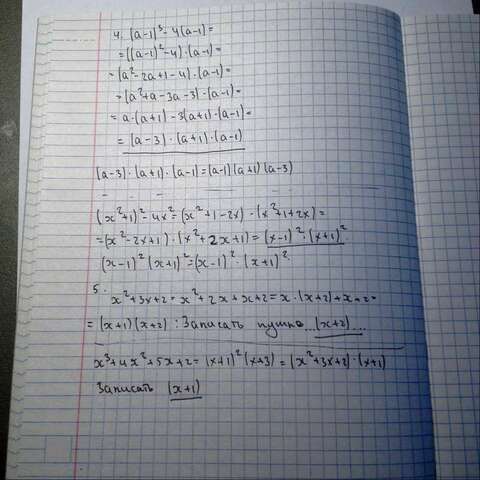 4. (a-1)³ - 4(a-1)=
=((a-1)²-4)·(a-1)=
=(a²-2a+1-4)·(a-1)=
=(a²+a-3a-3)·(a-1)=
=a·(a+1)-3(a+1)·(a-1)=
=(a-3)·(a+1)·(a-1)
(a-3)·(a+1)·(a-1)=(a-1)(a+1)(a-3)
(x²+1)²-4x²=(x²+1-2x)·(x²+1+2x)=
=(x²-2x+1)·(x²+2x+1)=(x-1)²·(x+1)²
(x-1)²(x+1)²=(x-1)²·(x+1)²
5.
x²+3x+2=x²+2x+x+2=x·(x+2)+x+2=
=(x+1)(x+2) : Записать нужно...(x+2)...
x³+4x²+5x+2=(x+1)²(x+3)=(x²+3x+2)·(x+1)
Записать (x+1)